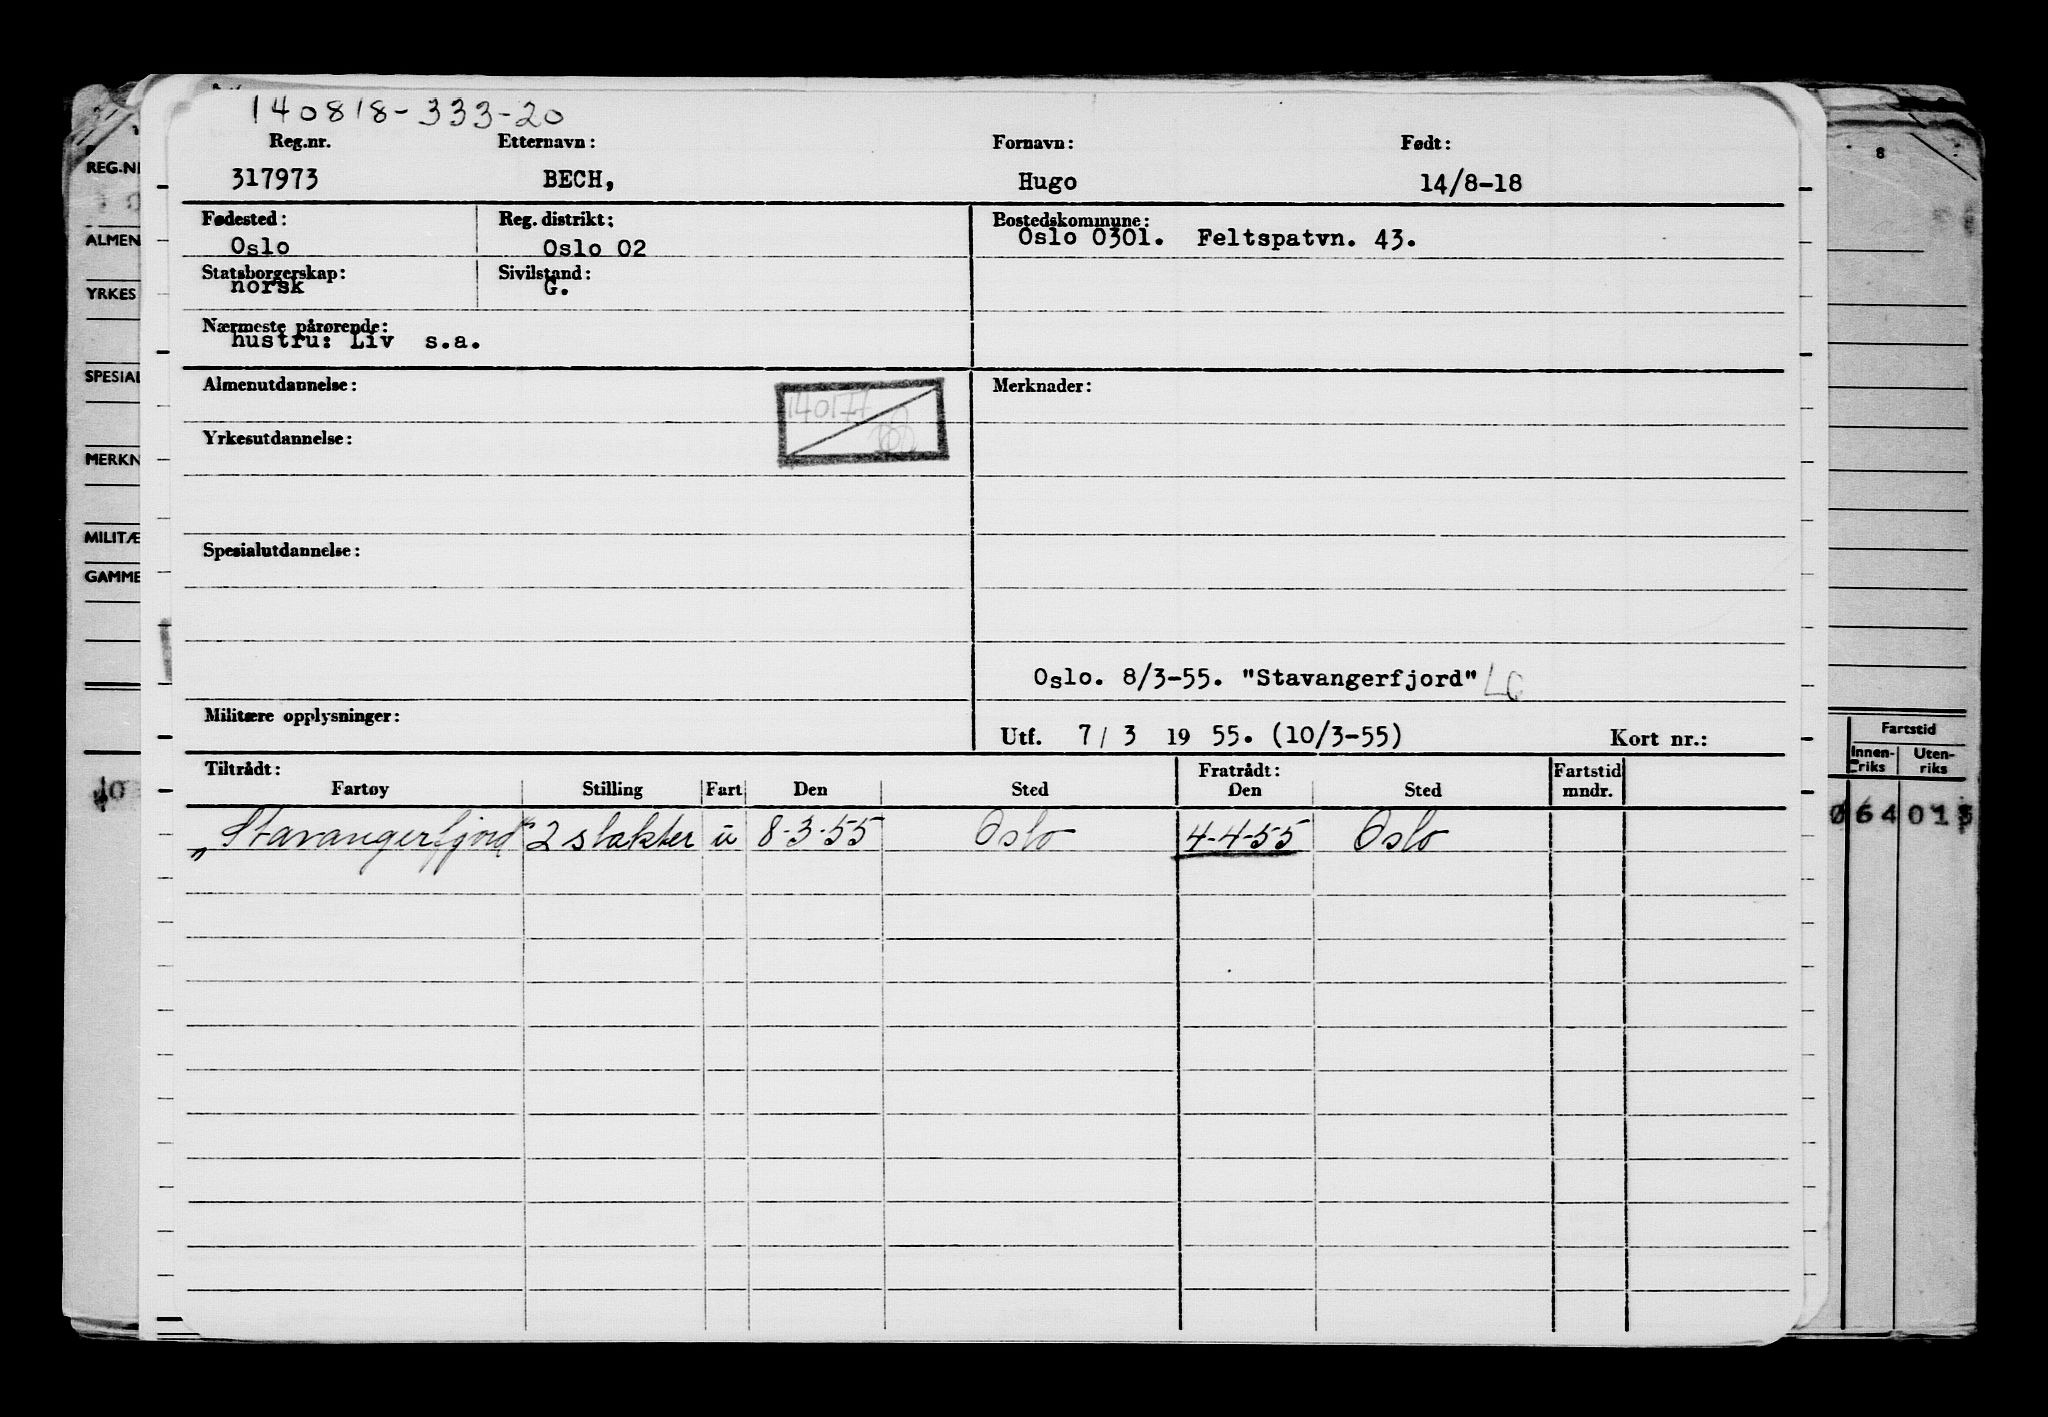 140818-333-20
Reg.nr. Etternavn: Fornavn: Født:
317973 BECH, Hugo 14/8-18
Fødested: Reg. distrikt: Bostedskommune:
Oslo Oslo 02 Oslo 0301. Feltspatvn. 43.
Statsborgerskap: Sivilstand:
norsk G.
Nærmeste pårørende:
hustru: Liv s.a.
Almenutdannelse: Merknader:
Yrkesutdannelse:
Spesialutdannelse:
Oslo. 8/3-55. "Stavangerfjord"
Militære opplysninger:
Utf. 7/3 19 55. (10/3-55) Kort nr.:
Tiltrådt: Fratrådt: Fartstid
Fartøy Stilling Fart Den Sted Den Sted mndr.
„Stavangerfjord" 2 slakter u 8-3-55 Oslo 4-4-55 Oslo
REG.N
ALMEN
YRKES
SPESIAL
MERKN
MILITÆ
GAMME
8
Fartstid
Innen- Uten-
riks riks